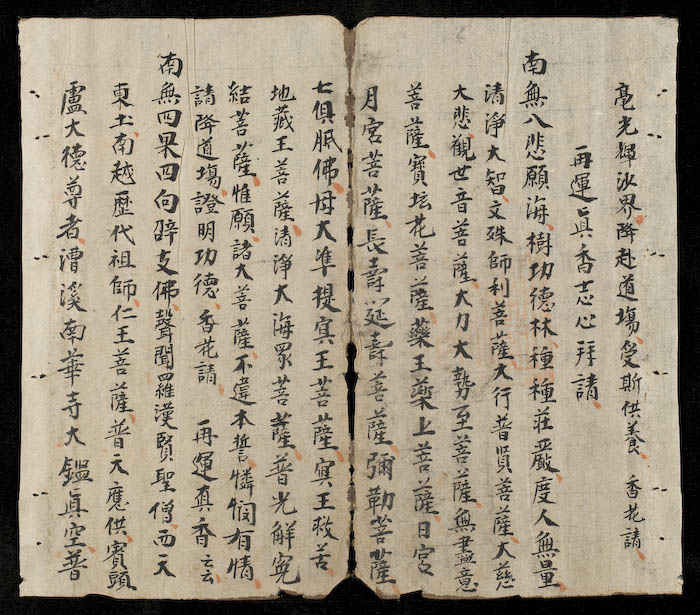 毫光輝沙界降赴道塲受斯供養 香花請
再運真香志心拜請
南無八悲願海樹功德林種種莊嚴度人無量
清淨大智文殊師利菩薩大行普賢菩薩大慈
大悲觀世音菩薩大力大勢至菩薩無盡意
菩薩寶坛花菩薩藥王藥上菩薩日宮
月宮菩薩長壽延壽菩薩彌勒菩薩
七俱胝佛母大準提冥王菩薩冥王救苦
地藏王菩薩清淨大海眾菩薩普光解冤
結菩薩惟願諸大菩薩不違本誓憐憫有情
請降道塲證明功德 香花請 再運真香云云
南無四果四向辟支佛聲聞羅漢賢聖僧西天
東土南越歷代祖師仁王菩薩普天應供賓頭
盧大德尊者漕溪南華寺大鑑真空普